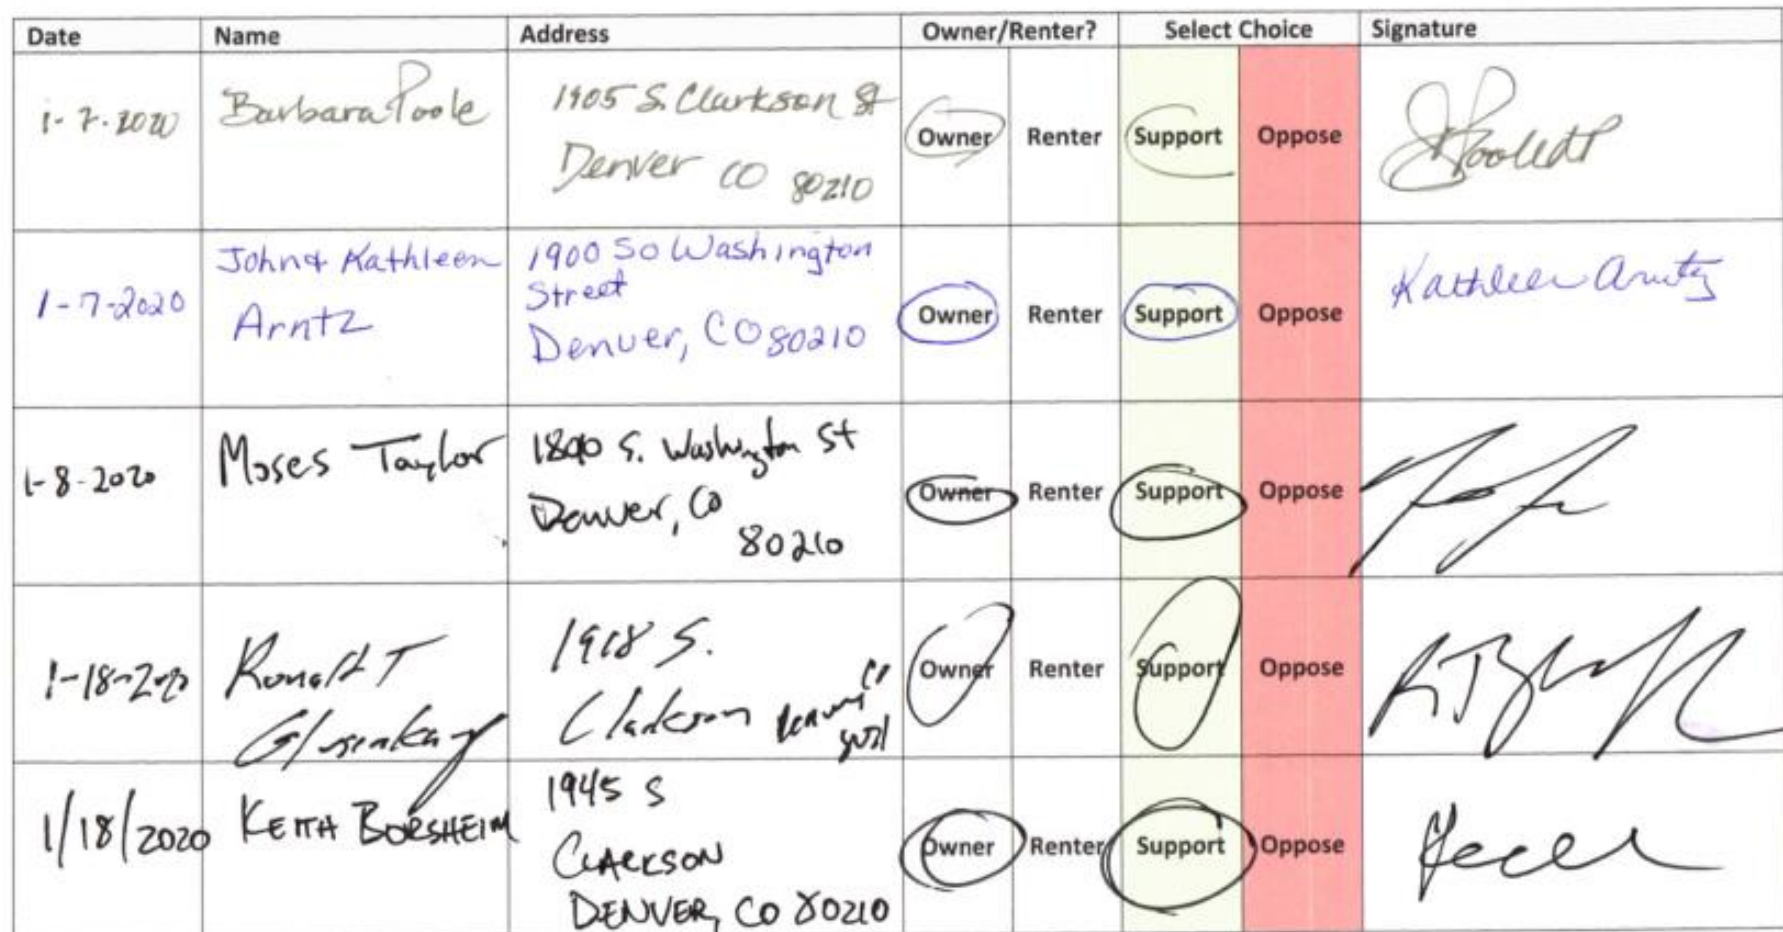 Date Name Address Owner/Renter? Select Choice Signature
1-7-2020 Barbara Poole 1905 S. Clarkson St
Denver CO 80210
Owner Renter Support Oppose
John & Kathleen
Arntz
1-7-2020
1900 So Washington
Street
Denver, CO 80210
Owner Renter Support Oppose
Kathleen Arntz
1-8-2020 Moses Taylor 1890 S. Washington St
Denver, Co
80210
Owner Renter Support Oppose
1-18-2020 Ronald T
1918 S.
Clarkson Denver Co
Owner Renter Support Oppose
1/18/2020 KEITH BORSHEIM
1945 S
CLARKSON
DENVER, CO 80210
Owner Renter Support Oppose